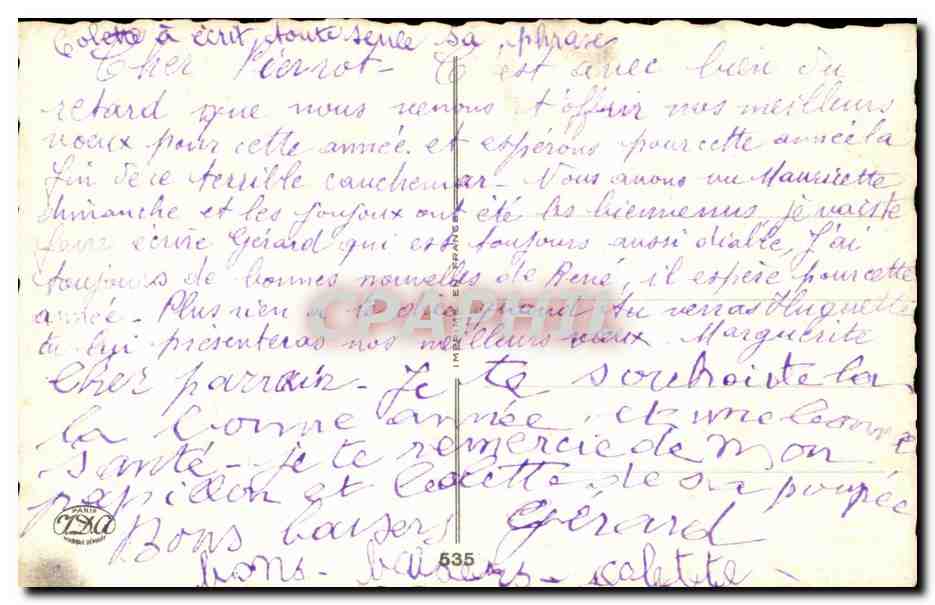 Colette à écrit toute seule sa phrase
Cher Pierrot - C'est avec bien du
retard que nous venons t'offrir nos meilleurs
voeux pour cette année. et espérons pour cette année la
fin de ce terrible cauchemar - Nous avons vu Mauricette
dimanche et les joujoux ont été les bienvenus, je vais te
faire écrire Gérard qui est toujours aussi diable, J'ai
toujours de bonnes nouvelles de René, il espère pour cette
année - Plus rien a te dire Quand tu verras Huguette
tu lui présenteras nos meilleurs voeux. Marguerite
Cher parrain - Je te souhaite la
la bonne année et une bonne
santé - je te remercie de mon
papillon et Colette de sa poupée
Bons baisers Gérard
bons - baisers - colette -
IMPRIMÉ EN FRANCE
CPARAMA
PARIS
IDA
535